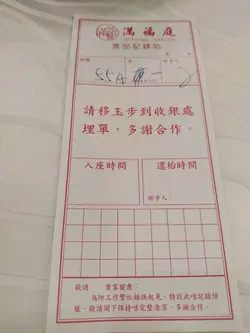 滿福庭
食品記錄咭
55A
請移玉步到收銀處
埋單，多謝合作。
入座時間
還枱時間
經手人：
敬請 貴客留意：
為防工作繁忙錯誤起見，特設此咭記錄
，敬請閣下保持咭完整清潔，多謝合作。